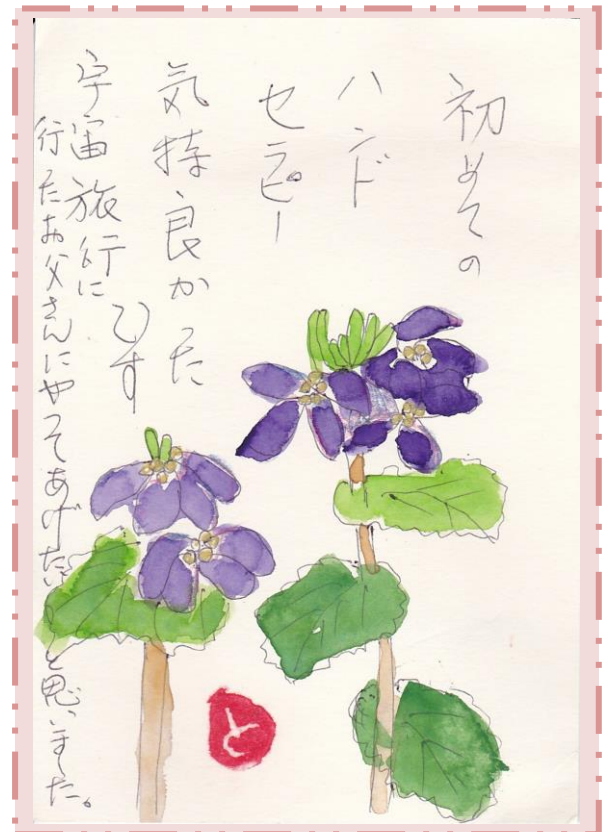 初めての
ハンド
セラピー
気持良かった
です
宇宙旅行に
行たお父さんにやってあげたいと思いました。
と